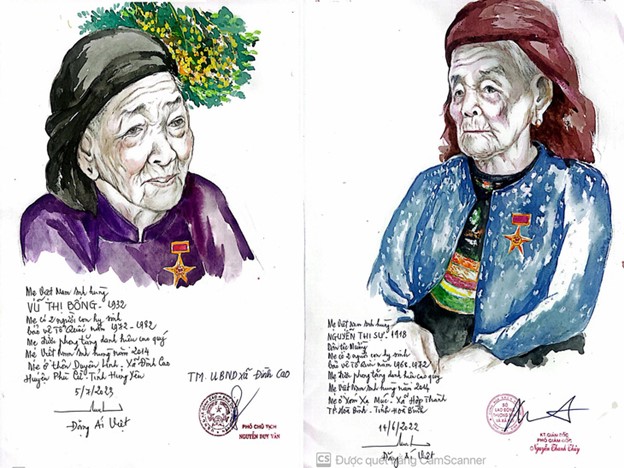 Mẹ Việt Nam anh hùng
VŨ THỊ BỔNG - 1932
Mẹ có 2 người con hy sinh
bảo vệ Tổ Quốc năm 1972 - 1982
Mẹ được phong tặng danh hiệu cao quý
Mẹ Việt Nam anh hùng năm 2014
Mẹ ở thôn Duyên Linh - Xã Đình Cao
Huyện Phù Cừ - Tỉnh Hưng Yên
5/7/2023
Đặng Ái Việt
TM. UBND xã Đình Cao
PHÓ CHỦ TỊCH
NGUYỄN DUY VĂN
Mẹ Việt Nam anh hùng
NGUYỄN THỊ SỰ - 1918
Dân tộc Mường
Mẹ có 2 người con hy sinh
bảo vệ Tổ Quốc năm 1968, 1972
Mẹ được phong tặng danh hiệu cao quý
Mẹ Việt Nam anh hùng năm 2014
Mẹ ở Xóm Múc - Xã Hợp Thành
TP Hòa Bình - Tỉnh Hòa Bình
14/6/2022
Đặng Ái Việt
BỘ
LAO ĐỘNG
KT. GIÁM ĐỐC
PHÓ GIÁM ĐỐC
Nguyễn Thanh Thủy
CS Được quét bằng CamScanner